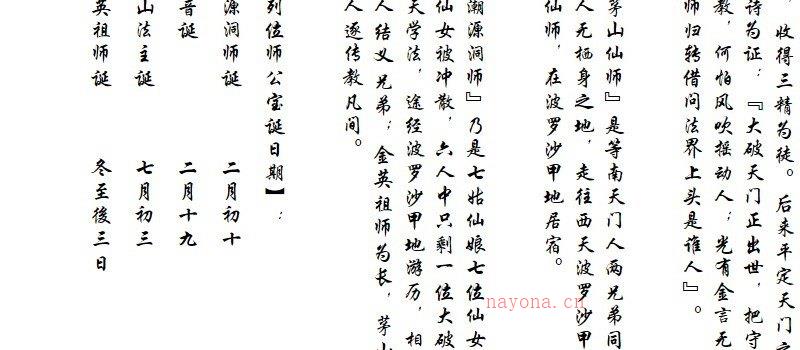 ，收得三精为徒。后来平定天门之
诗为证：『大破天门正出世，把守
教，何怕风吹摇动人；光有金言无
师归转借问法界上头是谁人』。
茅山仙师』是等南天门人两兄弟同
人无栖身之地，走往西天波罗沙甲
仙师，在波罗沙甲地居宿。
潮源洞师』乃是七姑仙娘七位仙女
仙女被冲散，六人中只剩一位大破
天学法，途经波罗沙甲地游历，相
人结义兄弟；金英祖师为长，茅山
人逐传教凡间。
列位师公宝诞日期】：
源洞师诞 二月初十
音诞 二月十九
山法主诞 七月初三
英祖师诞 冬至後三日
nayona.cn